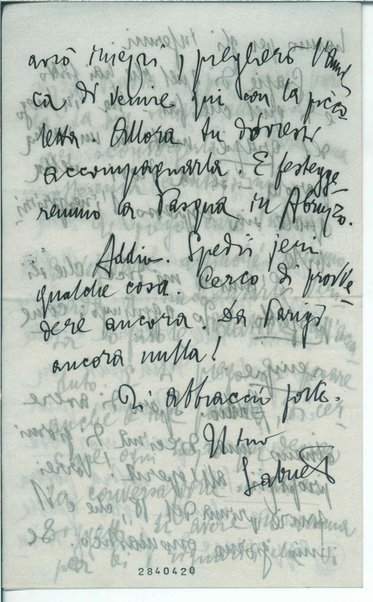 avrò mezzi, pregherò l'ami-
ca, di venire qui con la picco-
letta. Allora tu dovresti
accompagnarla. E festegge-
remmo la Pasqua in Abruzzo.
Addio. Spedii jeri
qualche cosa. Cerco di provve-
dere ancora. Da Parigi
ancora nulla!
Ti abbraccio forte.
Il tuo
Gabriel
2840420